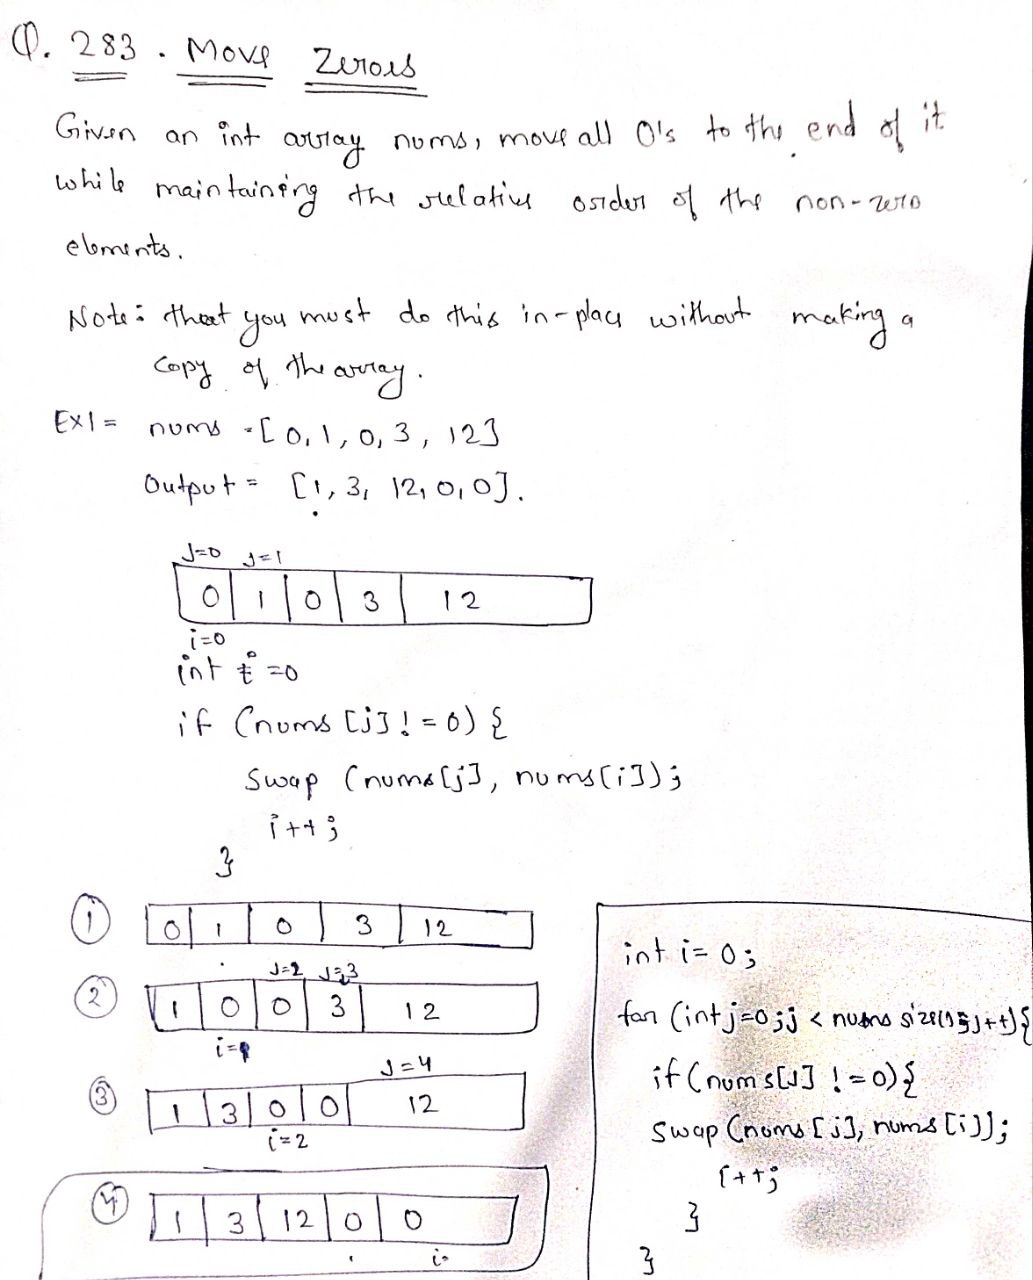 Q. 283. Move Zeroes
Given an int array nums, move all 0's to the end of it
while maintaining the relative order of the non-zero
elements.
Note: that you must do this in-place without making a
copy of the array.
Ex1 = nums = [0, 1, 0, 3, 12]
Output = [1, 3, 12, 0, 0].
J=0 J=1
0 1 0 3 12
i=0
int i=0
if (nums[j] != 0) {
Swap (nums[j], nums[i]);
i++;
}
① 0 1 0 3 12
J=2 J=3
② 1 0 0 3 12
i=1
J=4
③ 1 3 0 0 12
i=2
④ 1 3 12 0 0
int i= 0;
for (int j=0; j < nums size(); j++) {
if (nums[J] != 0) {
Swap (nums[j], nums[i]);
i++;
}
}